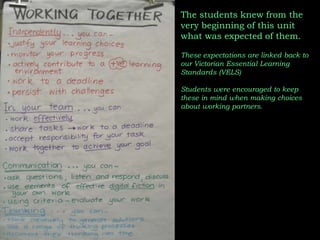 WORKING TOGETHER
Independently... you can-
• justify your learning choices
• monitor your progress
• actively contribute to a +ve learning
environment
• work to a deadline
• persist with challenges
In your team ... you can
• work effectively
• share tasks → work to a deadline
• accept responsibility for your task
• work together to achieve your goal
Communication ... you can-
• ask questions, listen and respond, discuss
• use elements of effective digital fiction in
your own work
• using criteria - evaluate your work
Thinking ... you can-
• think creatively to generate solutions
• use a range of thinking processes
The students knew from the
very beginning of this unit
what was expected of them.
These expectations are linked back to
our Victorian Essential Learning
Standards (VELS)
Students were encouraged to keep
these in mind when making choices
about working partners.